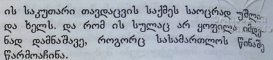 ის საკუთარი თავდაცვის საქმეს საოცრად უშლი-
და ხელს. და რომ ის სულაც არ ყოფილა იმდე-
ნად დამნაშავე, როგორც სასამართლოს წინაშე
წარმოაჩინა.